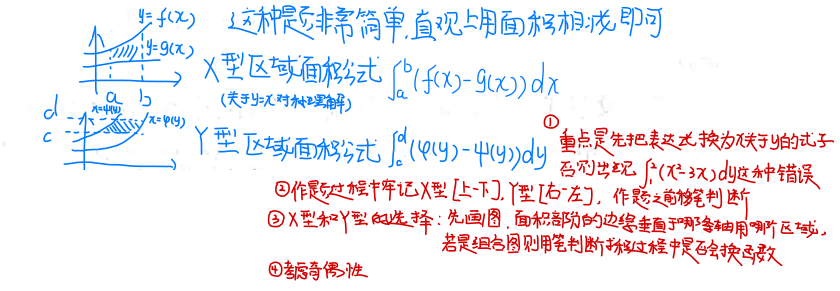 y=f(x)
这种题非常简单,直观上用面积相减即可
y=g(x)
X型区域面积公式 ∫_a^b (f(x)-g(x))dx
a b
(关于y=x对称理解)
d x=ψ(y) x=φ(y)
c
Y型区域面积公式 ∫_c^d (φ(y)-ψ(y))dy
①重点是先把表达式换为x关于y的式子
否则出现 ∫_1^2 (x²-3x)dy这种错误
②作题过程中牢记X型[上-下],Y型[右-左],作题之前移笔判断
③X型和Y型的选择:先画图,面积部分的边缘垂直于哪条轴用哪个区域,
若是组合图则用笔判断移过程中是否会换函数
④考虑奇偶性